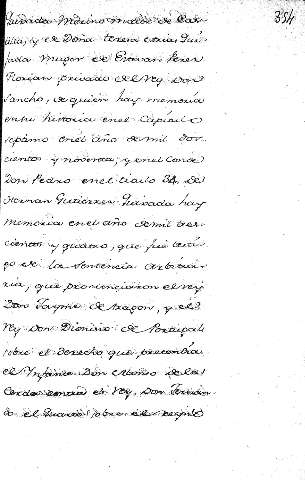 354
Quixada Merino maior de Cas
tilla; y de Doña teresa
Muger de Estevan Perez
Florian privado del Rey Don
Sancho, de quien hay memoria
en su historia en el Capitulo
septimo en el año de mil dos
cientos y noventa; y en el Conde
Don Pedro en el titulo de
Hernan Gutiérrez Quixada hay
memoria en el año de mil tres
cientos y quatro, que fue testi
go de la Sentencia Arbitra
ria, que pronunciaron el rey
Don Jayme de Aragon, y el
Rey Don Dionisio de Portugal
sobre el derecho que pretendia
el Ynfante Don Alonso de la
Cerda contra el Rey Don Fernan
do el quarto sobre el